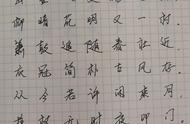 柳暗花明又一村
箫鼓追随春社近
衣冠简朴古风存
从今若许闲乘月
拄杖无时夜叩门